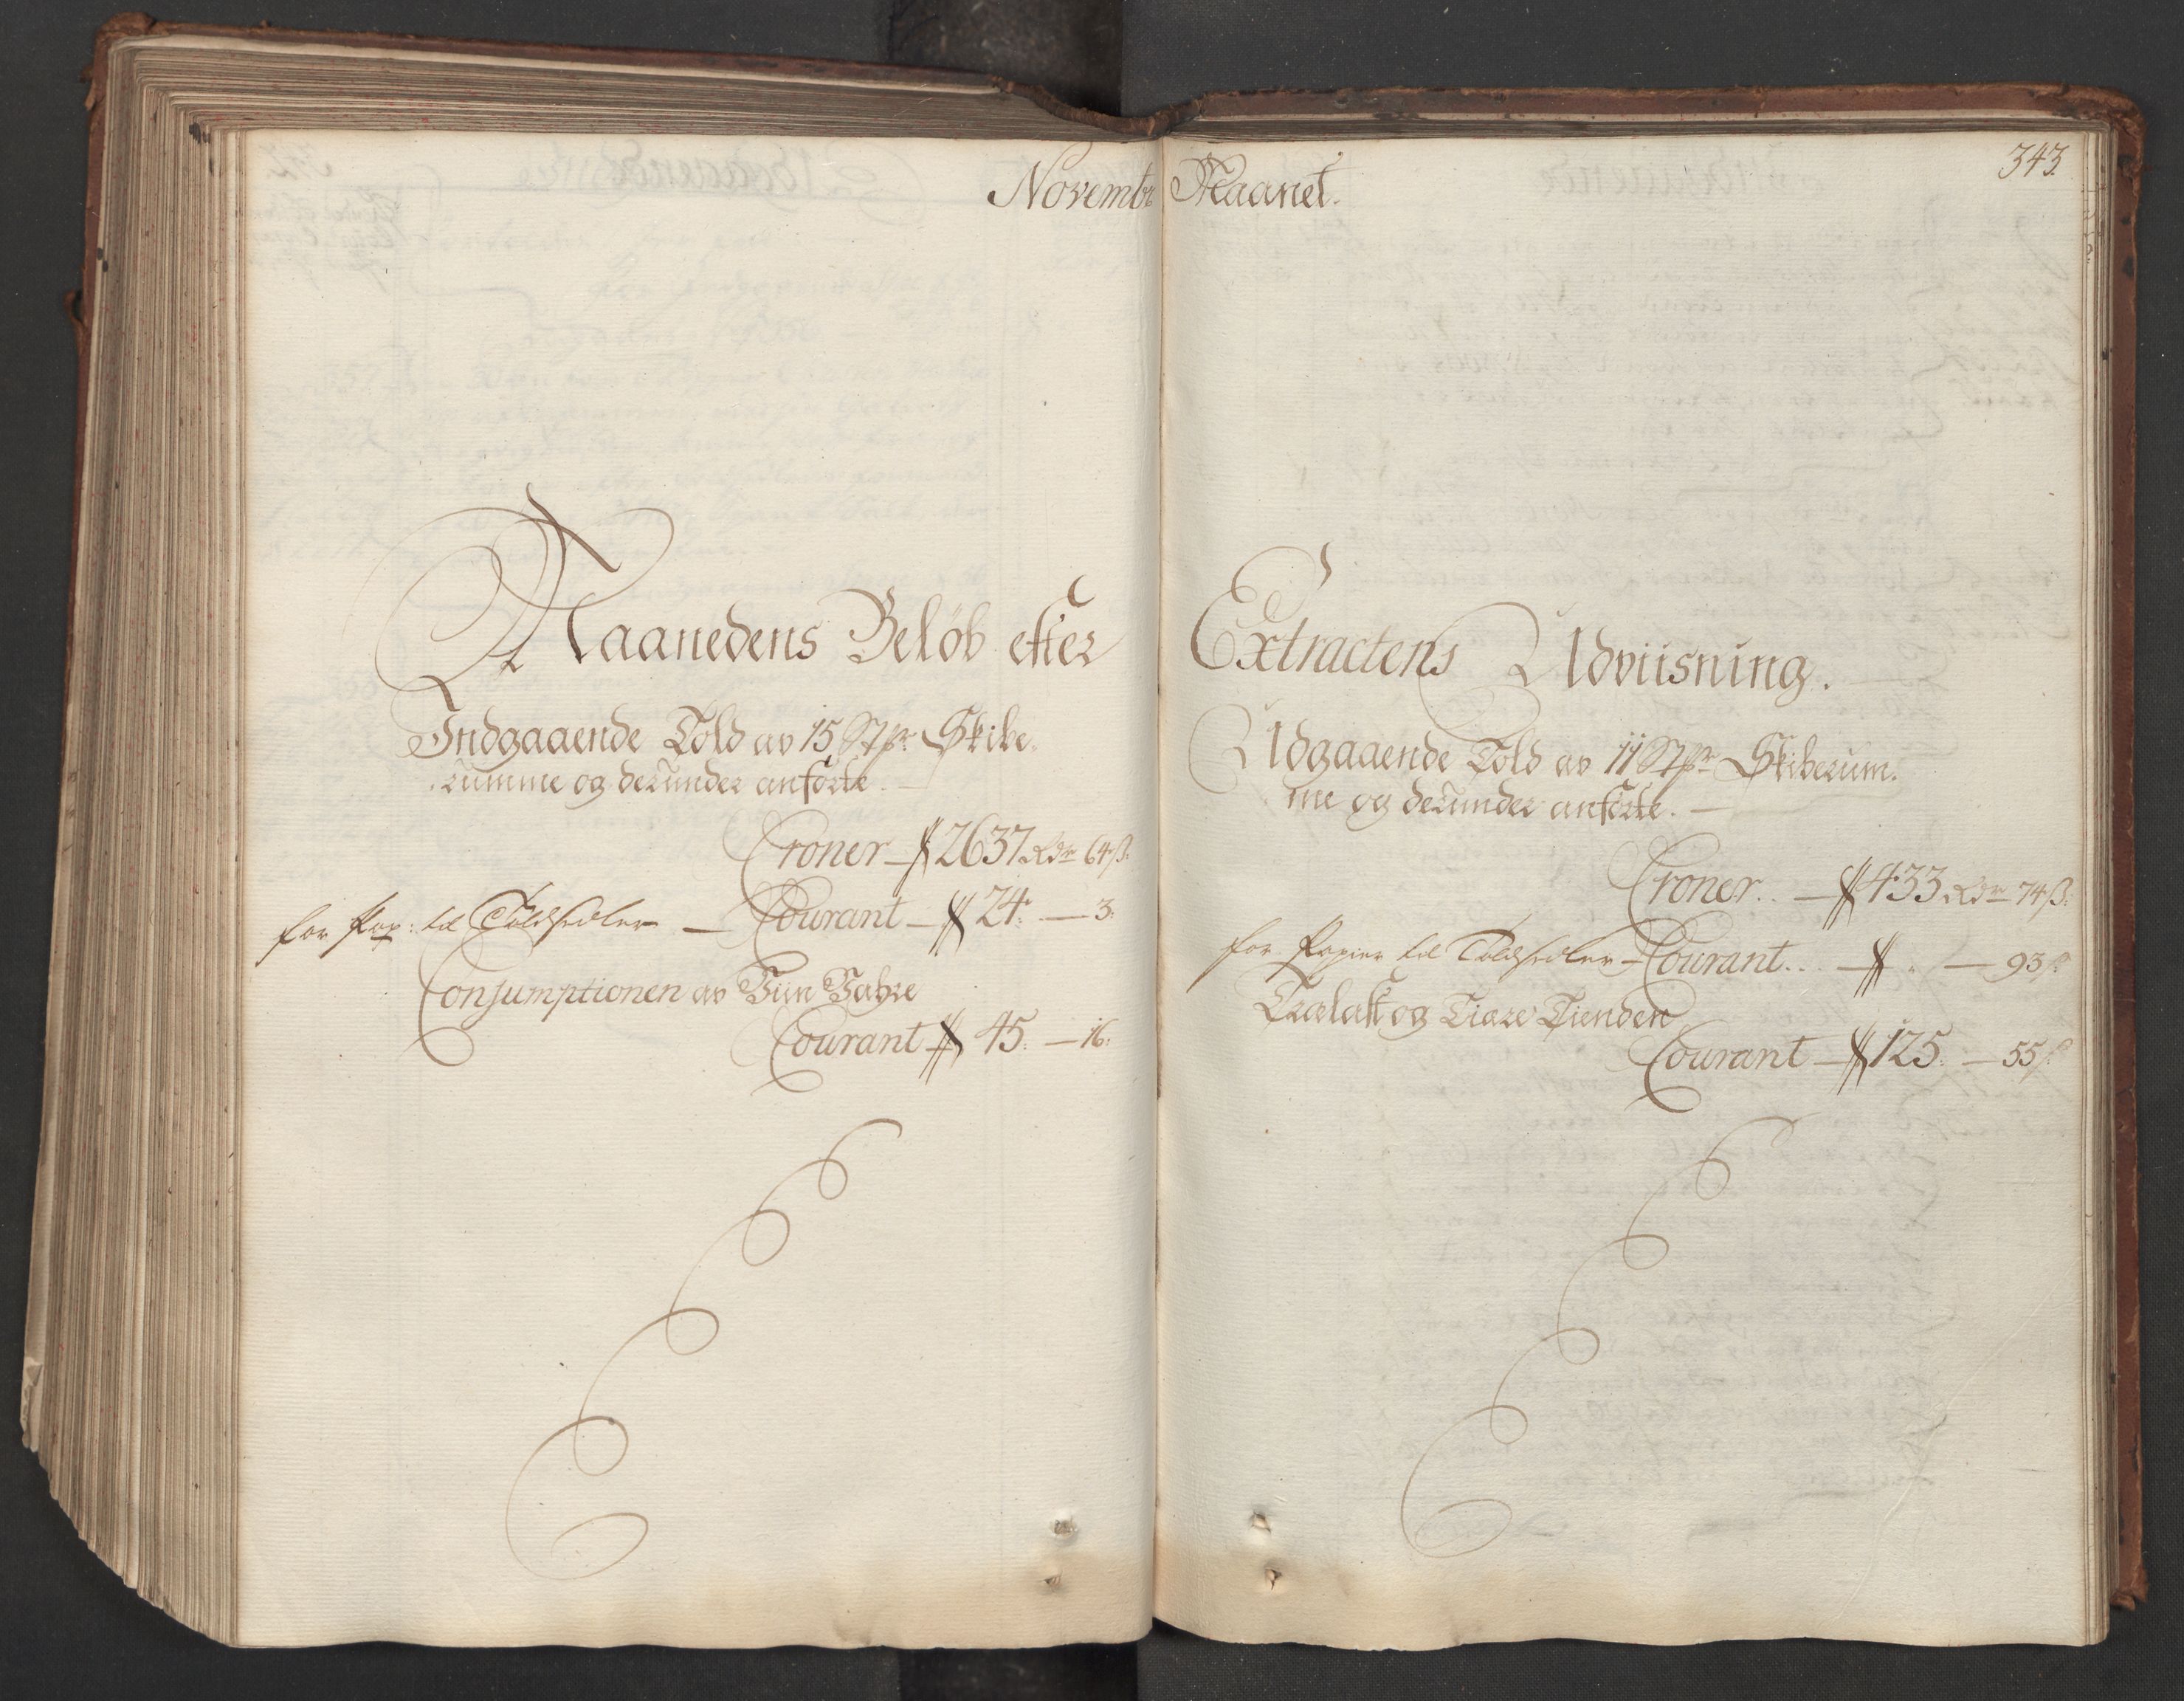 Novembr Maanet.
343.
Maanedens Beløb efter Extractens Udviisning.
Indgaaende Told av 15 Stpr Skibe-
rumme og derunder anførte. —
Croner — 2637 Rdr 64 ß.
for Pap: til Toldsedler — Courant — 24. — 3.
Consumptionen av
Courant 45. — 16.
Udgaaende Told av 11 Stpr Skiberum-
me og derunder anførte. —
Croner.. — 433 Rdr 74 ß.
for Papier til Toldsedler — Courant... — . — 93 ß
Trælast og Tiære Tienden
Courant — 125. — 55 ß